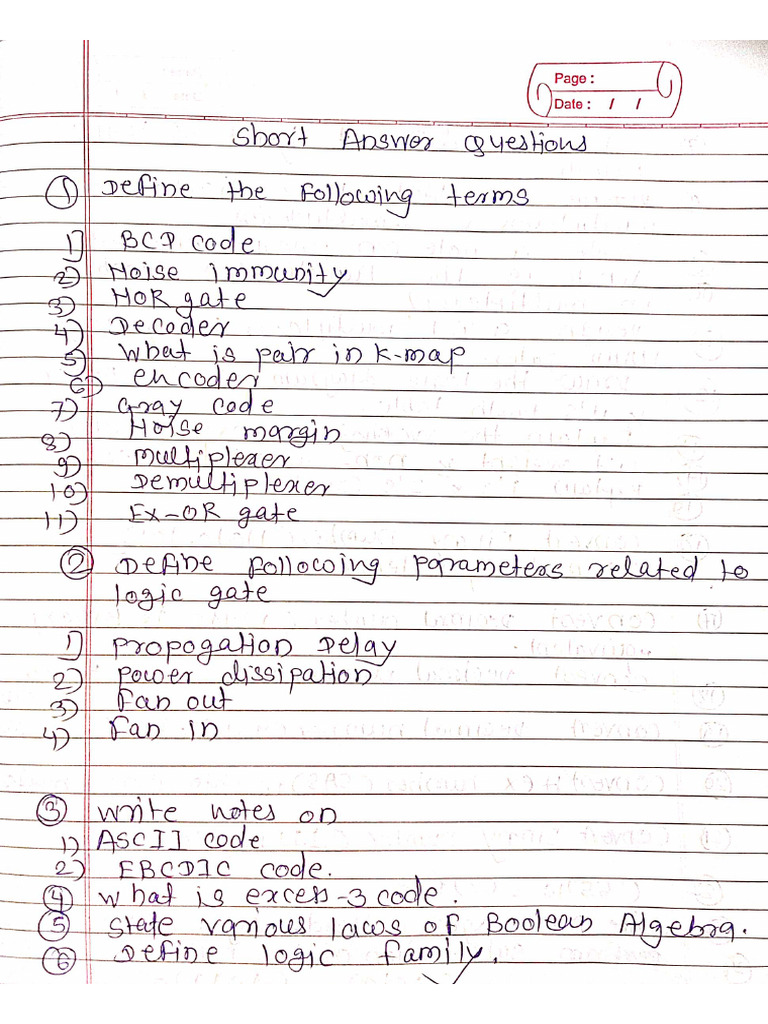 Page :
Date : / /
Short Answer Questions
① Define the following terms
1] BCD code
2) Noise immunity
3) NOR gate
4) Decoder
5) What is pair in K-map
6) encoder
7) Gray code
8) Noise margin
9) multiplexer
10) Demultiplexer
11) Ex-OR gate
② Define following parameters related to
logic gate
1) Propogation Delay
2) Power dissipation
3) Fan out
4) Fan in
③ write notes on
1) ASCII code
2) EBCDIC code.
④ what is excess-3 code.
⑤ State various laws of Boolean Algebra.
⑥ Define logic family.